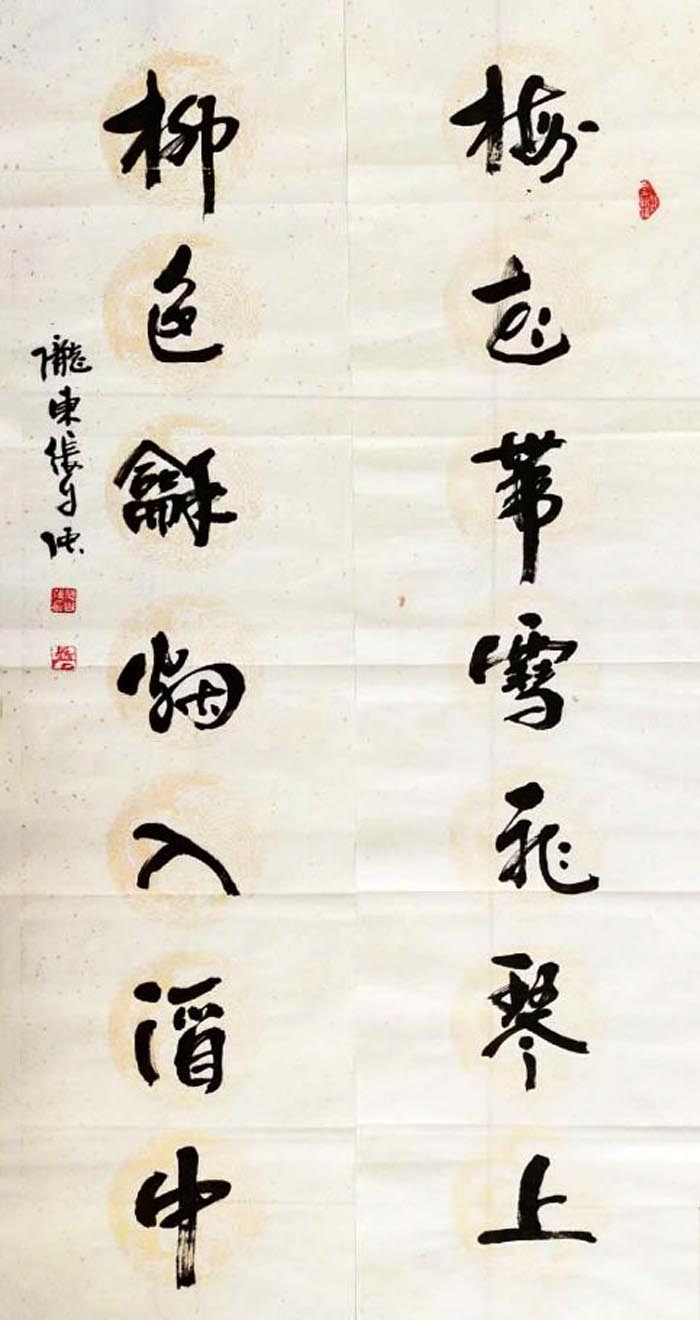 梅花带雪飞琴上
柳色和烟入酒中
陇东张